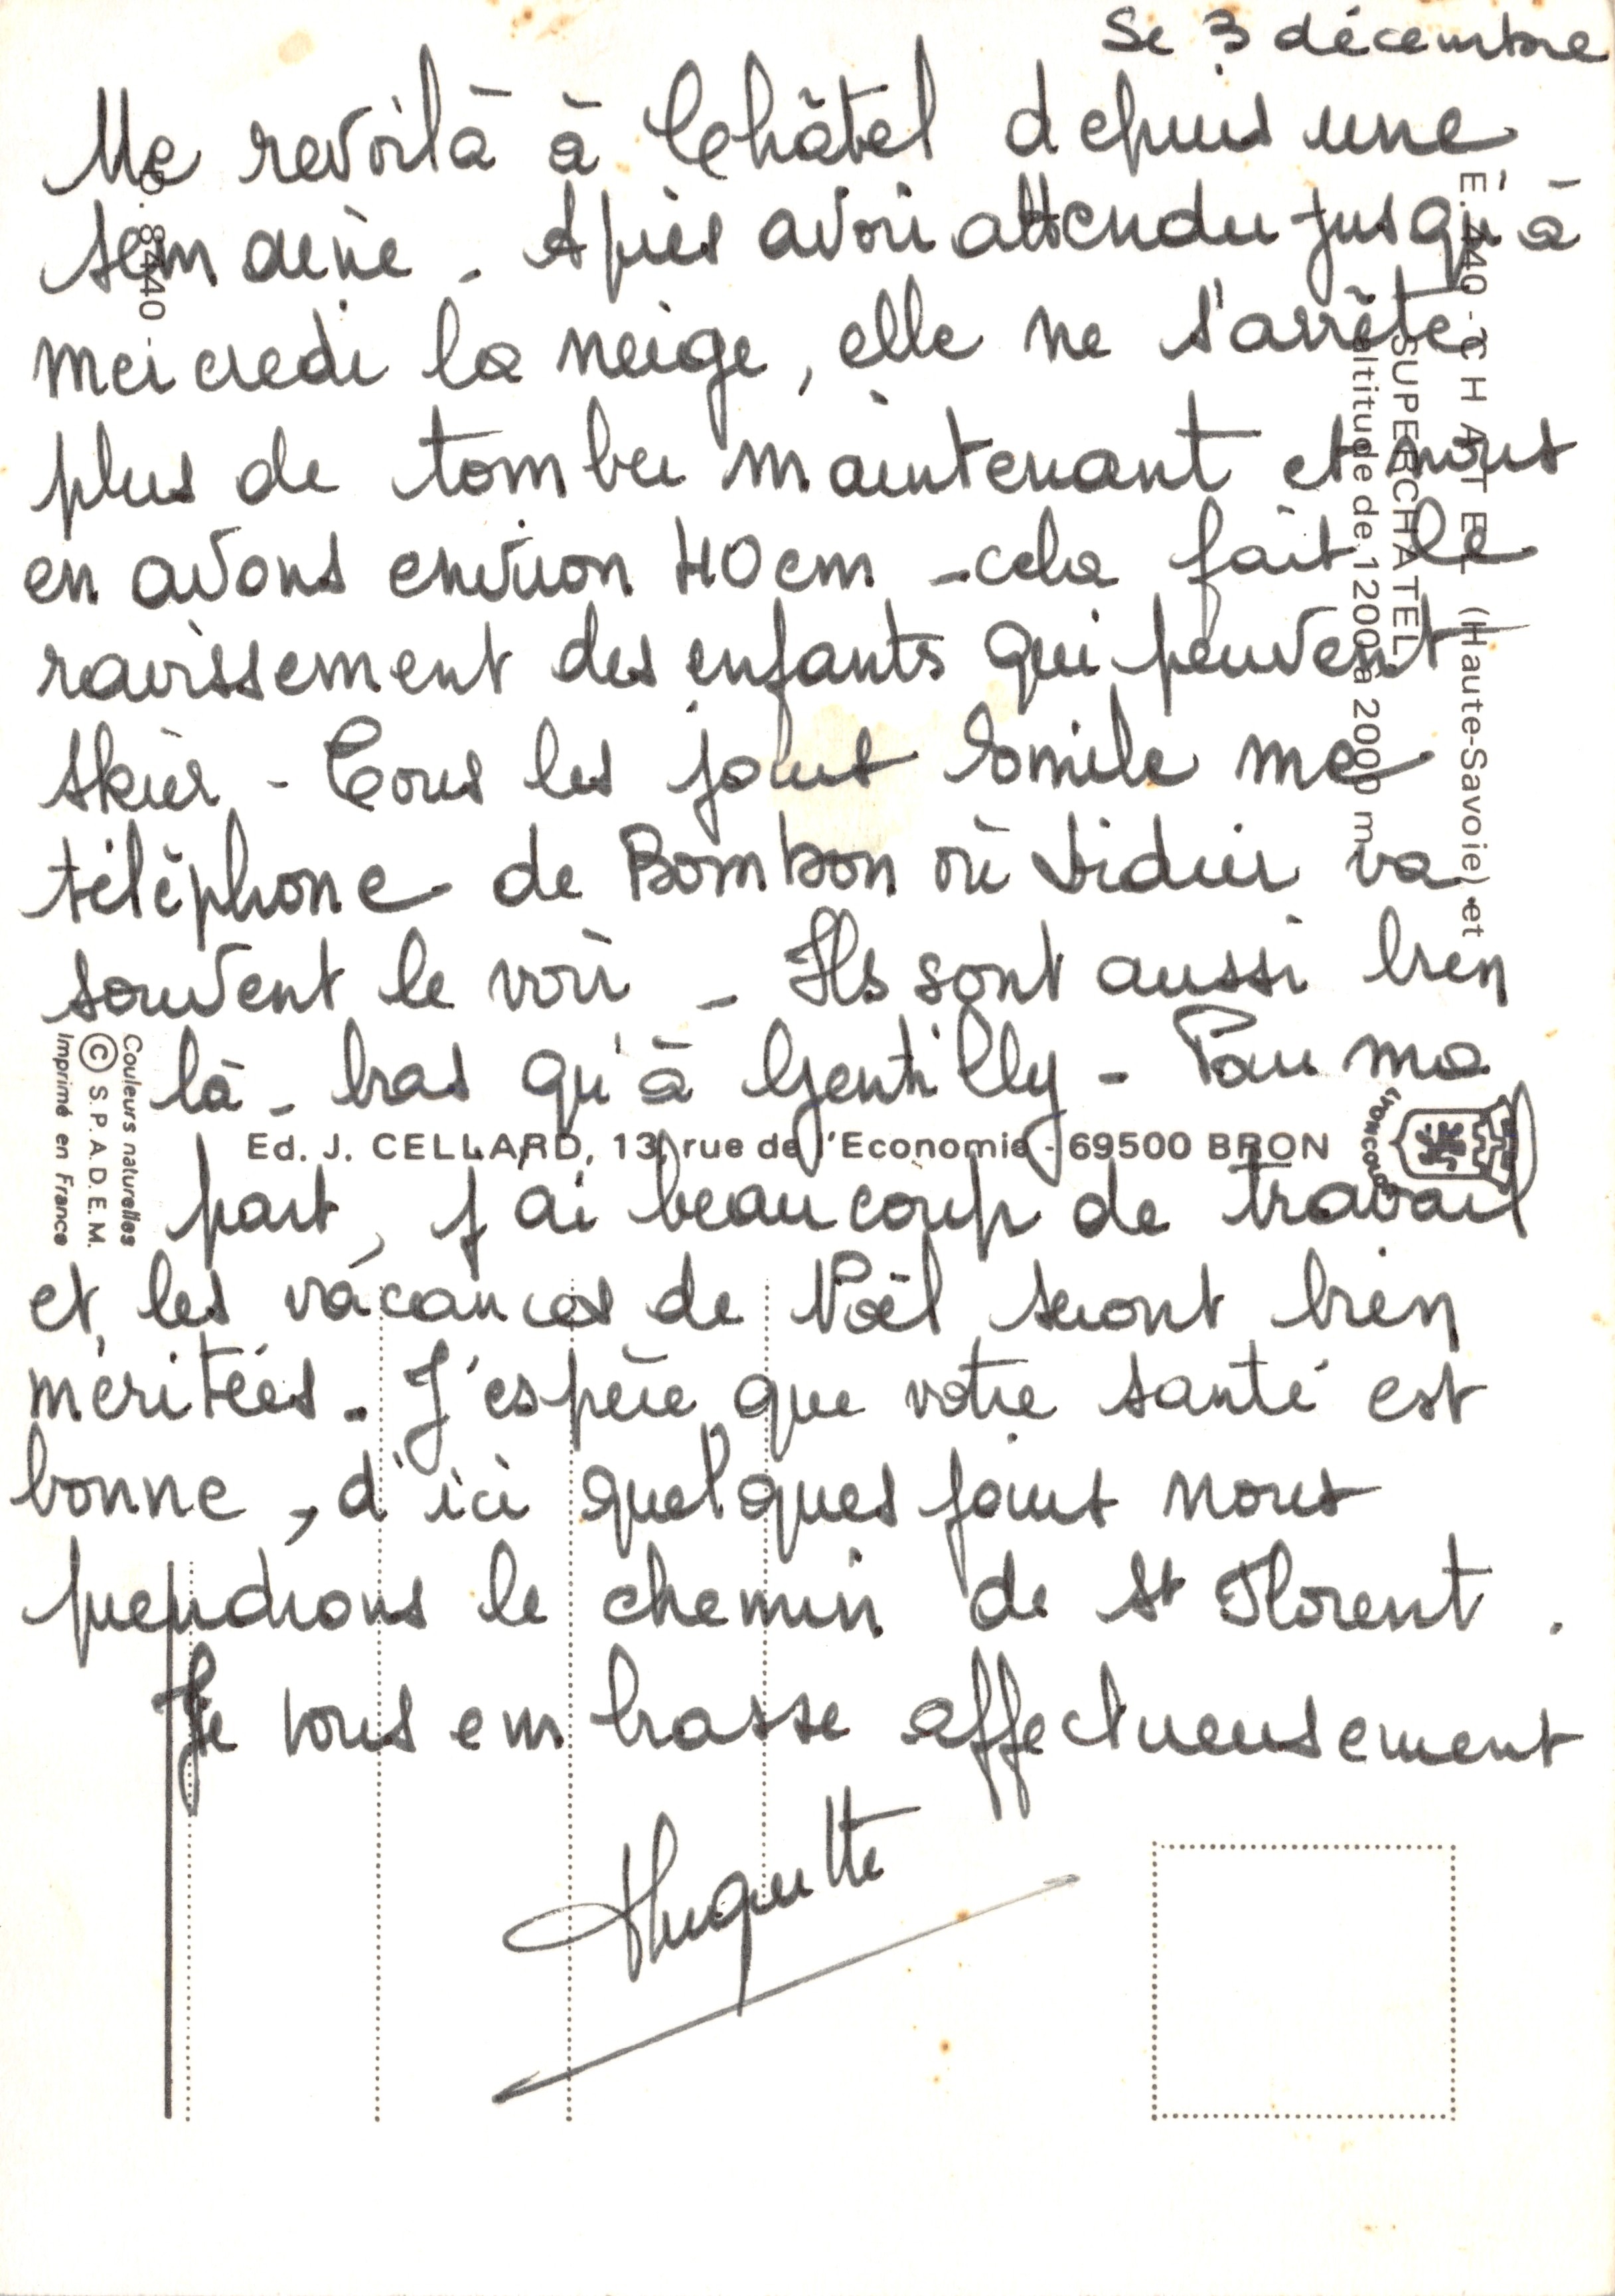 Le 3 décembre
Me revoilà à Châtel depuis une
semaine. Après avoir attendu jusqu'à
mercredi la neige, elle ne s'arrête
plus de tomber maintenant et nous
en avons environ 40 cm - cela fait le
ravissement des enfants qui peuvent
skier - Tous les jours Emile me
téléphone de Bombon où Didier va
souvent le voir - Ils sont aussi bien
là-bas qu'à Gentilly - Pour ma
part, j'ai beaucoup de travail
et les vacances de Noël seront bien
méritées. J'espère que votre santé est
bonne, d'ici quelques jours nous
prendrons le chemin de St Florent.
Je vous embrasse affectueusement
Huguette
E. 440 - CHATEL (Haute-Savoie) et
SUPERCHATEL
altitude de 1200 à 2000 m
Ed. J. CELLARD, 13, rue de l'Economie - 69500 BRON
Couleurs naturelles
© S.P.A.D.E.M.
Imprimé en France